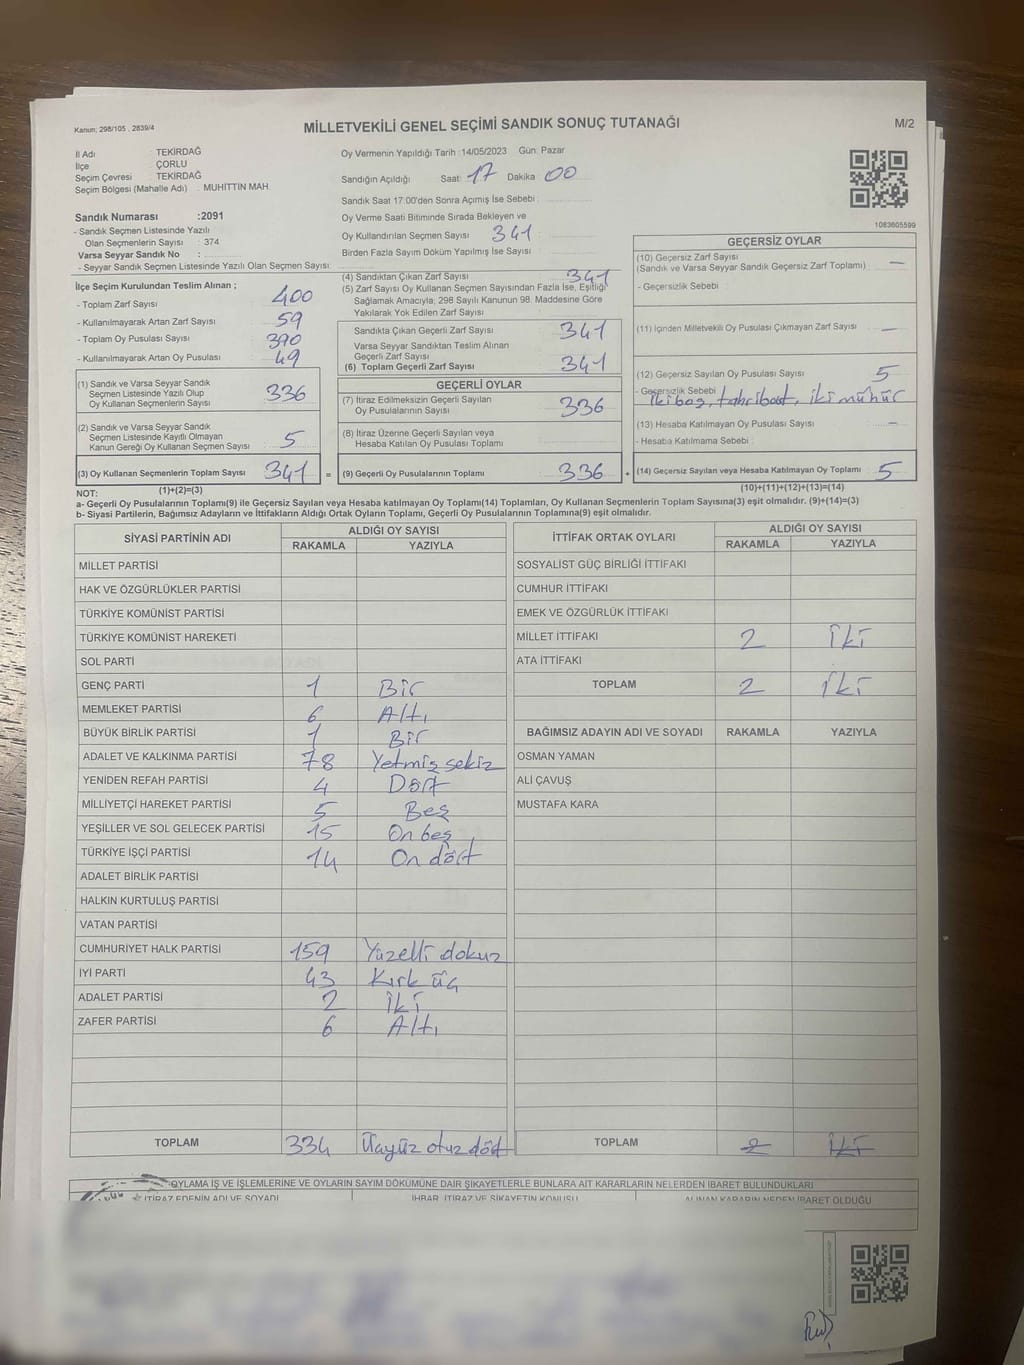 Kanun; 298/105 , 2839/4
MİLLETVEKİLİ GENEL SEÇİMİ SANDIK SONUÇ TUTANAĞI
M/2
İl Adı : TEKİRDAĞ
İlçe : ÇORLU
Seçim Çevresi : TEKİRDAĞ
Seçim Bölgesi (Mahalle Adı) : MUHİTTİN MAH.
Sandık Numarası :2091
- Sandık Seçmen Listesinde Yazılı
Olan Seçmenlerin Sayısı : 374
Varsa Seyyar Sandık No :
- Seyyar Sandık Seçmen Listesinde Yazılı Olan Seçmen Sayısı:
Oy Vermenin Yapıldığı Tarih :14/05/2023 Gün: Pazar
Sandığın Açıldığı Saat: 17 Dakika 00
Sandık Saat 17:00'den Sonra Açımış İse Sebebi :
Oy Verme Saati Bitiminde Sırada Bekleyen ve
Oy Kullandırılan Seçmen Sayısı 341
Birden Fazla Sayım Döküm Yapılmış İse Sayısı
1083605599
İlçe Seçim Kurulundan Teslim Alınan ;
- Toplam Zarf Sayısı : 400
- Kullanılmayarak Artan Zarf Sayısı : 59
- Toplam Oy Pusulası Sayısı : 390
- Kullanılmayarak Artan Oy Pusulası : 49
(1) Sandık ve Varsa Seyyar Sandık
Seçmen Listesinde Yazılı Olup
Oy Kullanan Seçmenlerin Sayısı 336
(2) Sandık ve Varsa Seyyar Sandık
Seçmen Listesinde Kayıtlı Olmayan
Kanun Gereği Oy Kullanan Seçmen Sayısı 5
(3) Oy Kullanan Seçmenlerin Toplam Sayısı 341 =
(1)+(2)=(3)
(4) Sandıktan Çıkan Zarf Sayısı 341
(5) Zarf Sayısı Oy Kullanan Seçmen Sayısından Fazla İse, Eşitliği
Sağlamak Amacıyla; 298 Sayılı Kanunun 98. Maddesine Göre
Yakılarak Yok Edilen Zarf Sayısı :
Sandıkta Çıkan Geçerli Zarf Sayısı 341
Varsa Seyyar Sandıktan Teslim Alınan
Geçerli Zarf Sayısı
(6) Toplam Geçerli Zarf Sayısı 341
GEÇERLİ OYLAR
(7) İtiraz Edilmeksizin Geçerli Sayılan
Oy Pusulalarının Sayısı 336
(8) İtiraz Üzerine Geçerli Sayılan veya
Hesaba Katılan Oy Pusulası Toplamı
(9) Geçerli Oy Pusulalarının Toplamı 336 +
GEÇERSİZ OYLAR
(10) Geçersiz Zarf Sayısı
(Sandık ve Varsa Seyyar Sandık Geçersiz Zarf Toplamı) : —
- Geçersizlik Sebebi
(11) İçinden Milletvekili Oy Pusulası Çıkmayan Zarf Sayısı : —
(12) Geçersiz Sayılan Oy Pusulası Sayısı : 5
- Geçersizlik Sebebi :
iki boş, tahribat, iki mühür
(13) Hesaba Katılmayan Oy Pusulası Sayısı : —
- Hesaba Katılmama Sebebi :
(14) Geçersiz Sayılan veya Hesaba Katılmayan Oy Toplamı 5
(10)+(11)+(12)+(13)=(14)
NOT:
a- Geçerli Oy Pusulalarının Toplamı(9) ile Geçersiz Sayılan veya Hesaba katılmayan Oy Toplamı(14) Toplamları, Oy Kullanan Seçmenlerin Toplam Sayısına(3) eşit olmalıdır. (9)+(14)=(3)
b- Siyasi Partilerin, Bağımsız Adayların ve İttifakların Aldığı Ortak Oyların Toplamı, Geçerli Oy Pusulalarının Toplamına(9) eşit olmalıdır.
SİYASİ PARTİNİN ADI ALDIĞI OY SAYISI
RAKAMLA YAZIYLA
MİLLET PARTİSİ
HAK VE ÖZGÜRLÜKLER PARTİSİ
TÜRKİYE KOMÜNİST PARTİSİ
TÜRKİYE KOMÜNİST HAREKETİ
SOL PARTİ
GENÇ PARTİ 1 Bir
MEMLEKET PARTİSİ 6 Altı
BÜYÜK BİRLİK PARTİSİ 1 Bir
ADALET VE KALKINMA PARTİSİ 78 Yetmiş sekiz
YENİDEN REFAH PARTİSİ 4 Dört
MİLLİYETÇİ HAREKET PARTİSİ 5 Beş
YEŞİLLER VE SOL GELECEK PARTİSİ 15 On beş
TÜRKİYE İŞÇİ PARTİSİ 14 On dört
ADALET BİRLİK PARTİSİ
HALKIN KURTULUŞ PARTİSİ
VATAN PARTİSİ
CUMHURİYET HALK PARTİSİ 159 Yüzelli dokuz
İYİ PARTİ 43 Kırk üç
ADALET PARTİSİ 2 İki
ZAFER PARTİSİ 6 Altı
TOPLAM 334 Üçyüz otuz dört
İTTİFAK ORTAK OYLARI ALDIĞI OY SAYISI
RAKAMLA YAZIYLA
SOSYALİST GÜÇ BİRLİĞİ İTTİFAKI
CUMHUR İTTİFAKI
EMEK VE ÖZGÜRLÜK İTTİFAKI
MİLLET İTTİFAKI 2 İki
ATA İTTİFAKI
TOPLAM 2 İki
BAĞIMSIZ ADAYIN ADI VE SOYADI RAKAMLA YAZIYLA
OSMAN YAMAN
ALİ ÇAVUŞ
MUSTAFA KARA
TOPLAM 2 İki
OYLAMA İŞ VE İŞLEMLERİNE VE OYLARIN SAYIM DÖKÜMÜNE DAİR ŞİKAYETLERLE BUNLARA AİT KARARLARIN NELERDEN İBARET BULUNDUKLARI
İTİRAZ EDENİN ADI VE SOYADI İHBAR, İTİRAZ VE ŞİKAYETİN KONUSU ALINAN KARARIN NEDEN İBARET OLDUĞU